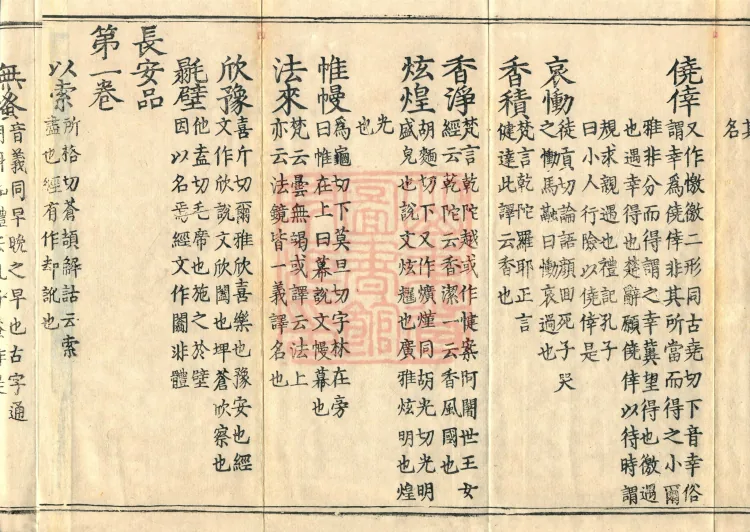 名
僥倖
又作憿徼二形同古堯切下音幸俗
謂幸爲僥倖非其所當而得之小爾
雅非分而得謂之幸冀望得也徼遇
也遇幸得也楚辭願僥倖以待時謂
規求親遇也禮記孔子
曰小人行險以僥倖是
哀慟
徒貢切論語顔回死子哭
之慟馬融曰慟哀過也
香積
梵言乾陀羅耶正言
健達此譯云香也
香淨
梵言乾陀越或作揵案阿闍世王女
經云乾陀云香潔一云香風國也
炫煌
胡麵切下又作熿煌同胡光切光明
盛皃也說文炫耀也廣雅炫明也煌
光
也
惟幔
爲龜切下莫旦切字林在旁
曰惟在上曰幕說文幔幕也
法來
梵云曇無竭或譯云法上
亦云法鏡皆一義譯名也
欣豫
喜斤切爾雅欣喜樂也豫安也經
文作欣說文欣闓也埤蒼欣察也
毾壁
他盍切毛席也施之於壁
因以名焉經文作闒非體
長安品
第一卷
以索
所格切蒼頡解詁云索
盡也經有作却說也
無蚤
音義同早晚之早也古字通